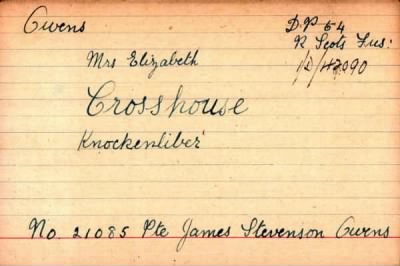 Owens
D.P 54
R Scots Fus:
D/42090
Mrs Elizabeth
Crosshouse
Knockenliber
No. 21085 Pte James Stevenson Owens